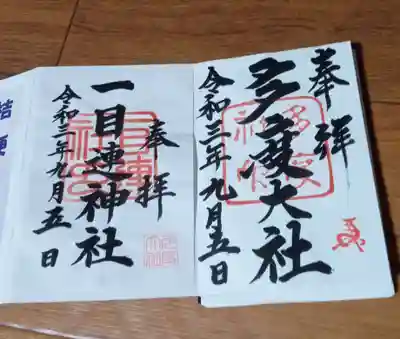 奉拝
多度大社
令和三年九月五日
奉拝
一目連神社
令和三年九月五日